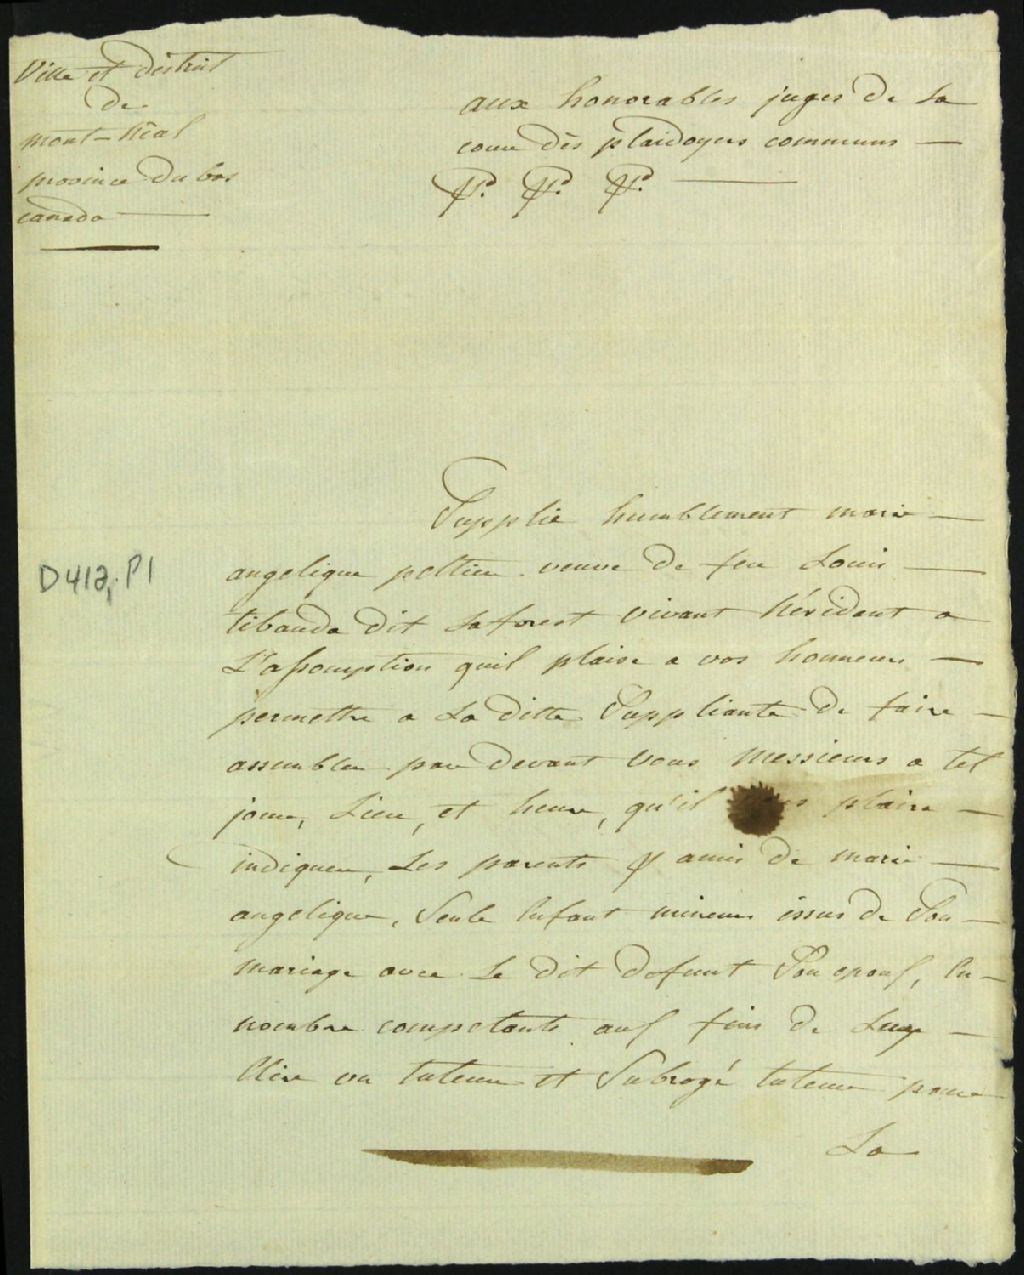 Ville et district
de
mont-Réal
province du bas
canada
aux honorables juges de La
cour dès plaidoyers communs
&c. &c. &c.
Supplie humblement marie
angelique peltier veuve de feu Louis
tibauda dit Laforest vivant Résident a
L'assomption quil plaise a vos honneurs
permettre a La ditte Suppliante de faire
assembler par devant vous messieurs a tel
jour, Lieu, et heure, qu'il plaira
indiquer, Les parents & amis de marie
angelique, Seule Enfant mineur issus de Son
mariage avec Le dit defunt Son epous, En
nombre competants aus fins de
Elire un tuteur et Subrogé tuteur pour
La
D412, P1